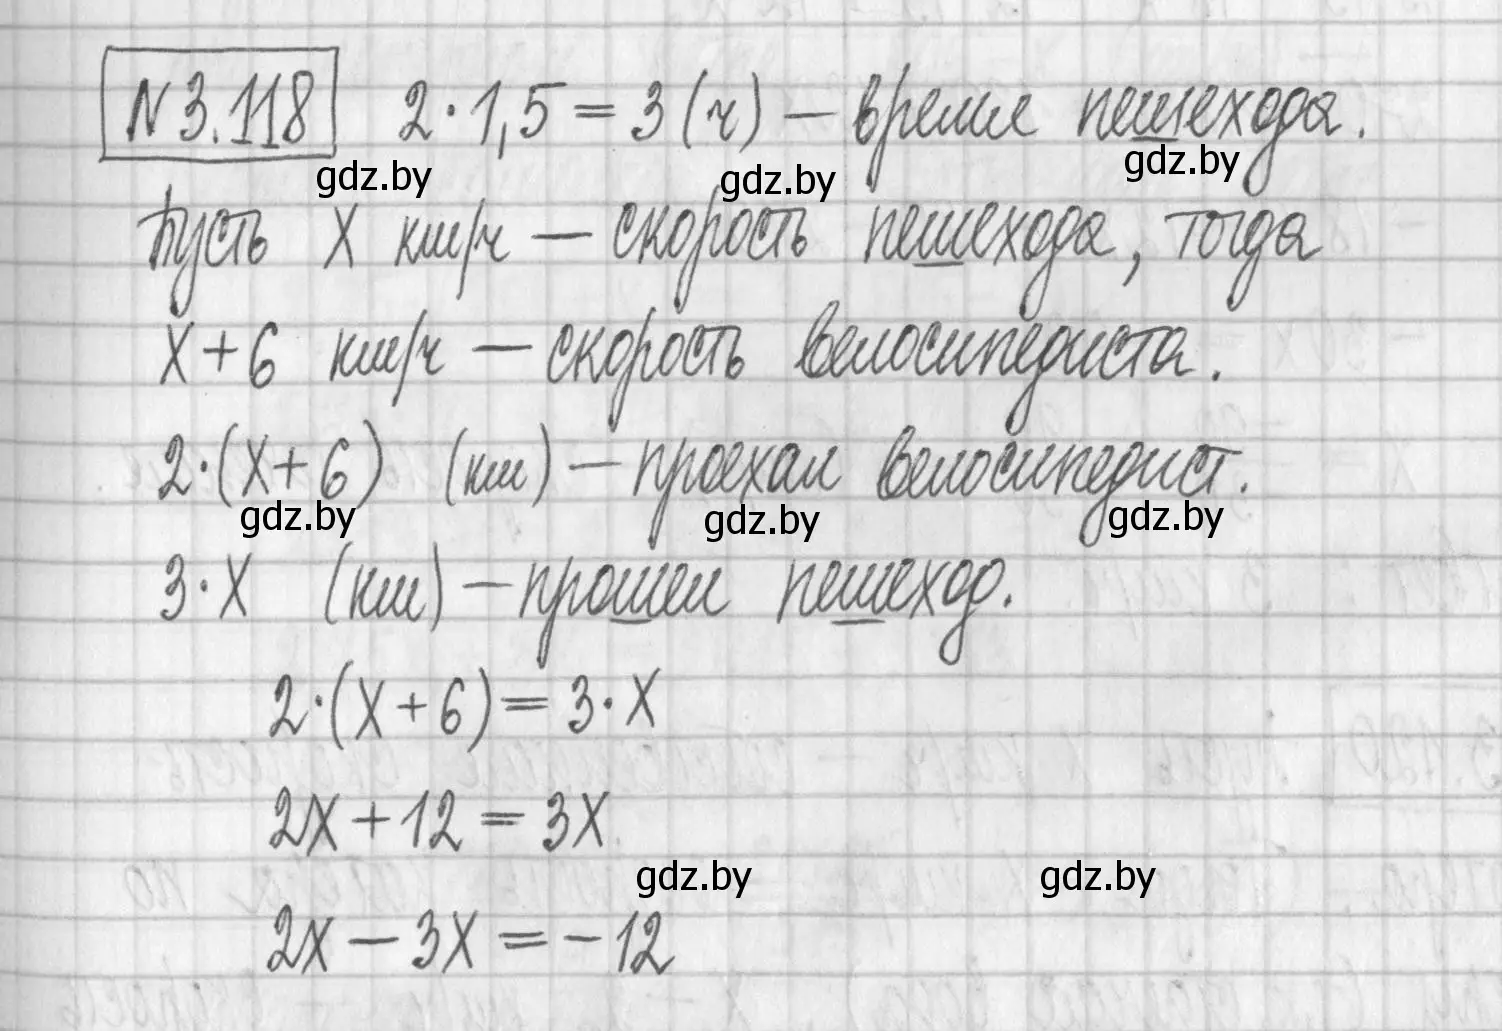 N 3.118 2·1,5=3(ч) – время пешехода.
gdz.by gdz.by gdz.by
Пусть X км/ч – скорость пешехода, тогда
X+6 км/ч – скорость велосипедиста.
2·(X+6) (км) – проехал велосипедист.
gdz.by gdz.by gdz.by
3·X (км) – прошел пешеход.
2·(X+6)=3·X
2X+12=3X
gdz.by gdz.by
2X–3X=–12